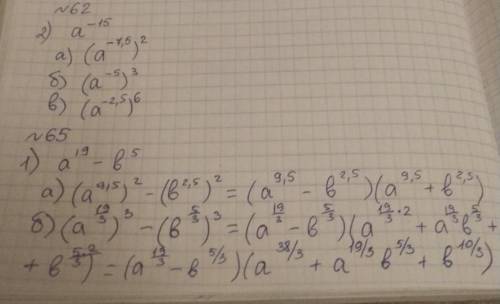 №62
2) a^{-15}
а) (a^{-7,5})^2
б) (a^{-5})^3
в) (a^{-2,5})^6
№65
1) a^{19} - в^5
а) (a^{9,5})^2 - (в^{2,5})^2 = (a^{9,5} - в^{2,5})(a^{9,5} + в^{2,5})
б) (a^{19/3})^3 - (в^{5/3})^3 = (a^{19/3} - в^{5/3})(a^{19/3·2} + a^{19/3} в^{5/3} +
+ в^{5·2/3}) = (a^{19/3} - в^{5/3})(a^{38/3} + a^{19/3} в^{5/3} + в^{10/3})